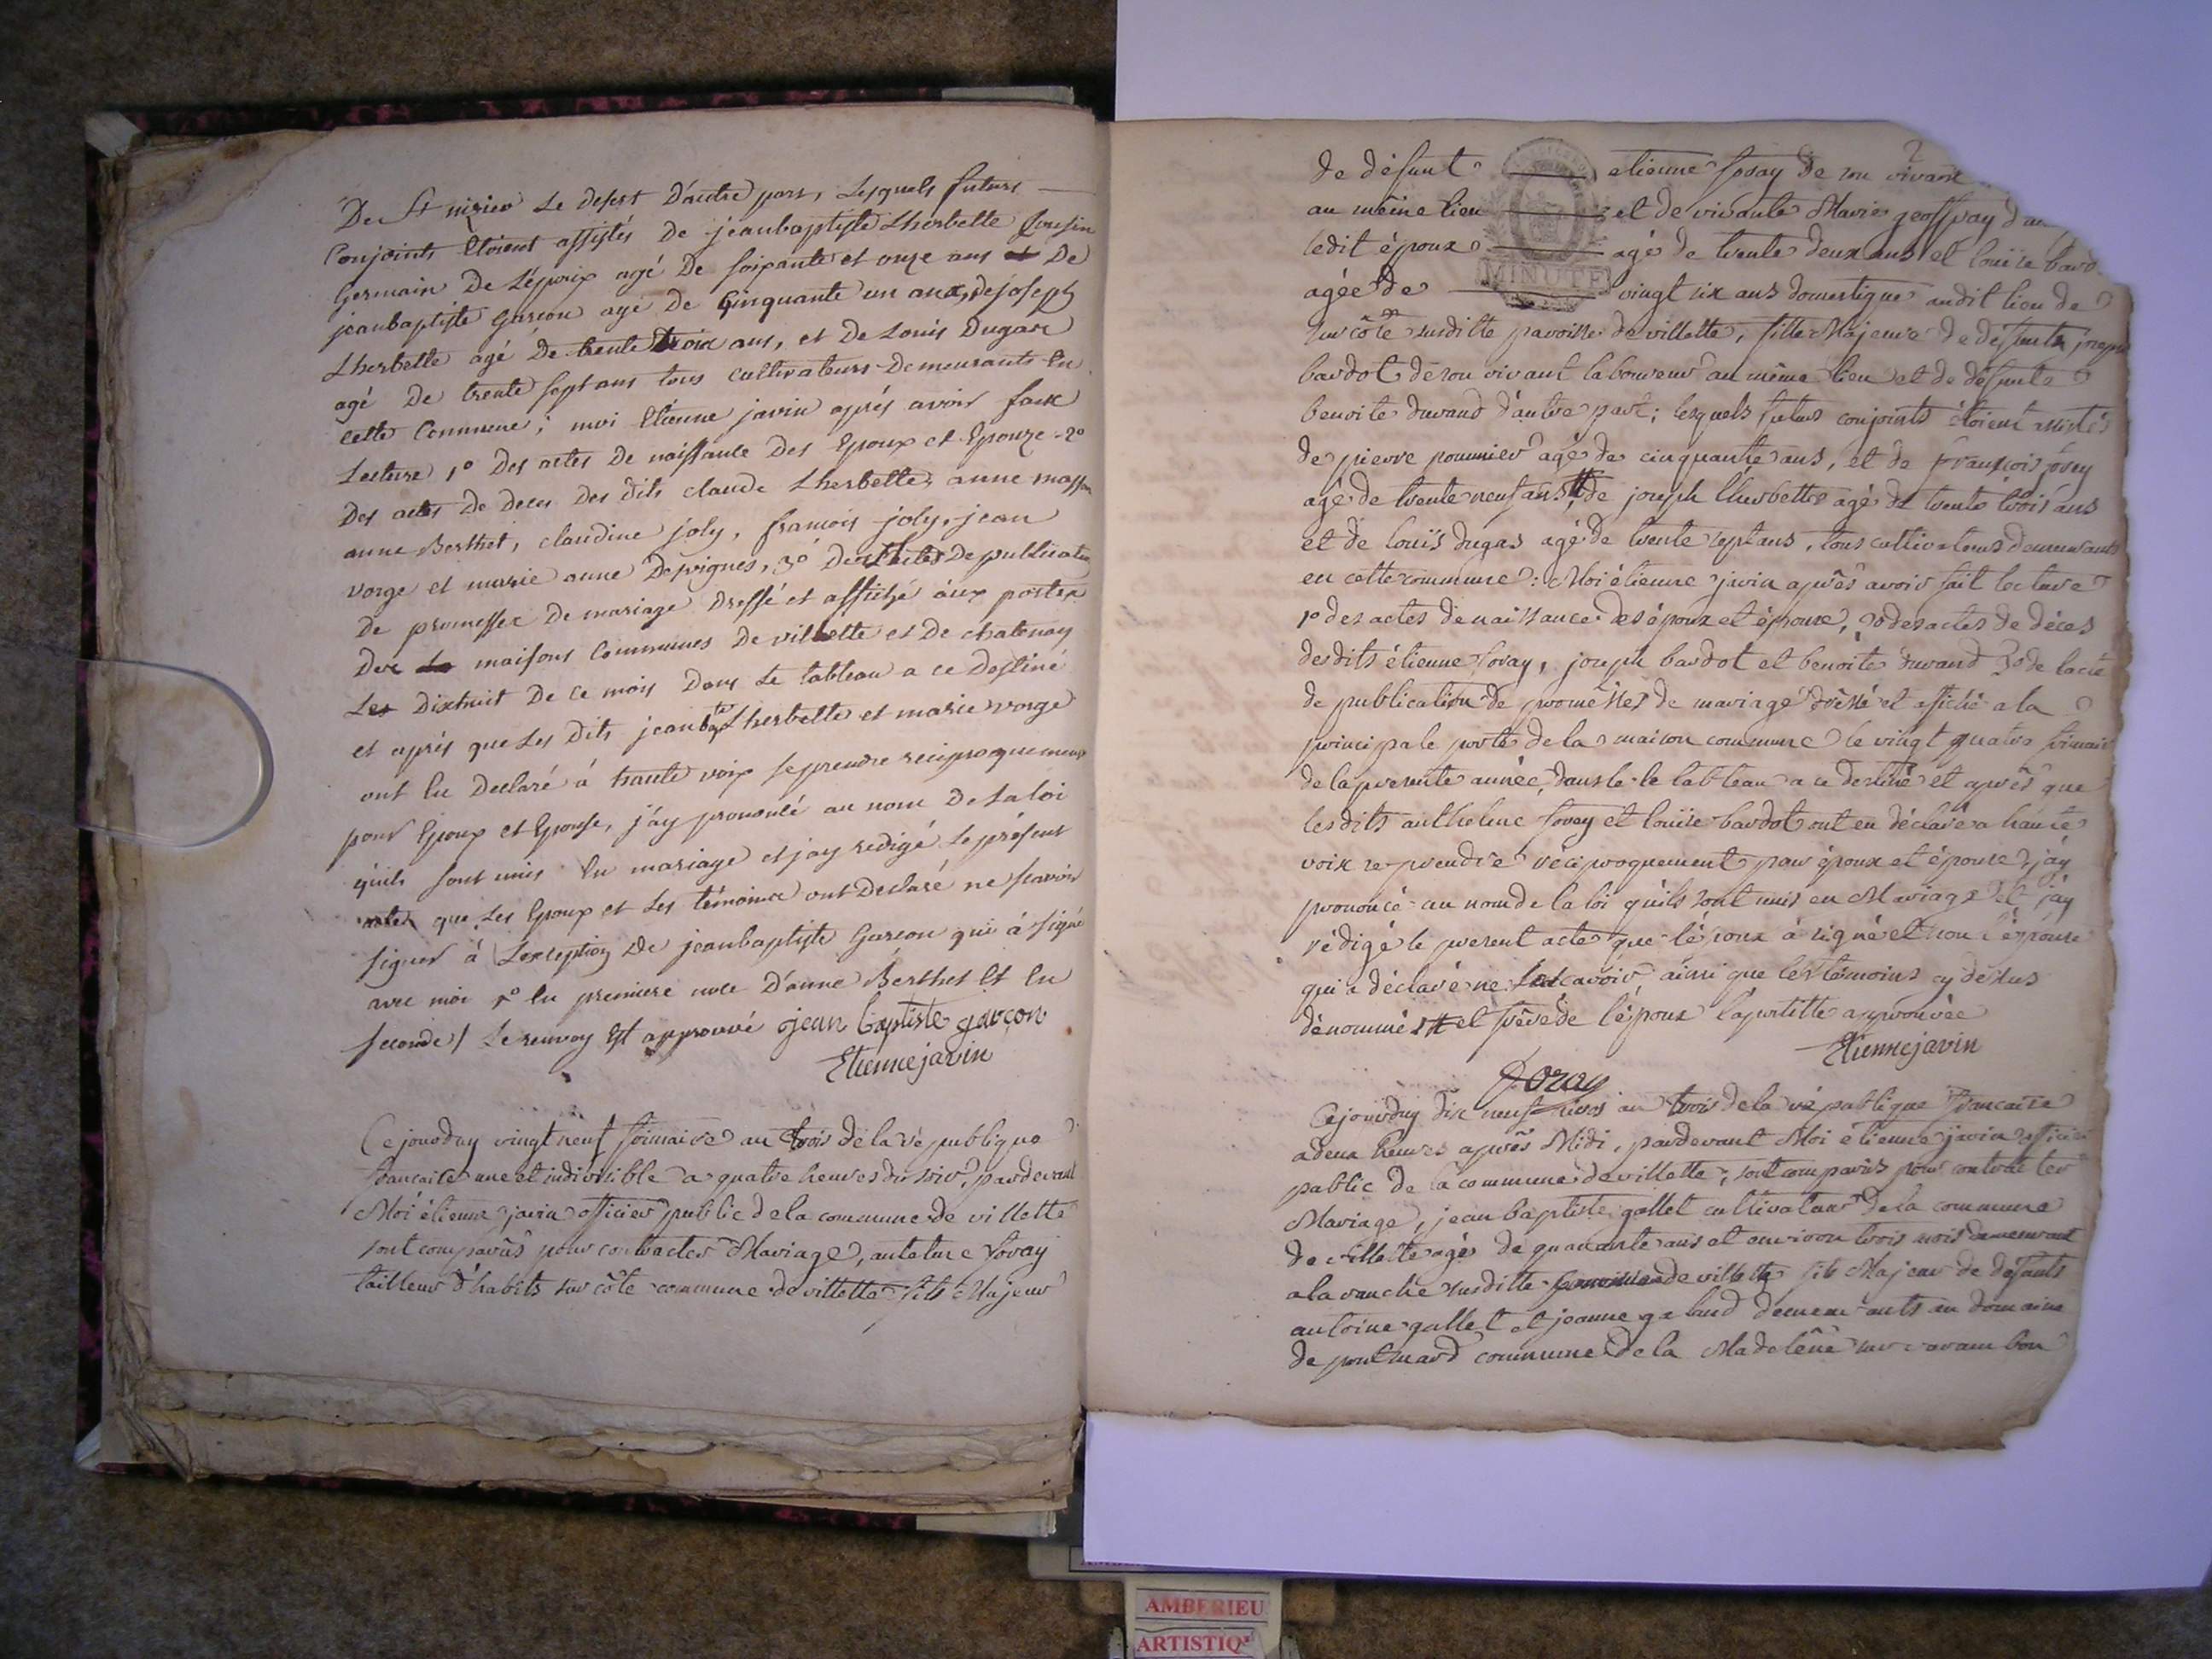 De St nizier Le desert D'autre part, Lesquels futurs
Conjoints Etoient assistés De jeanbaptiste Lherbette Cousin
Germain De L'époux agé De soixante et onze ans De
jeanbaptiste Garcon agé De Cinquante un ans, de joseph
Lherbette agé De trente trois ans, et De Louis Dugas
agé De trente sept ans tous cultivateurs Demeurants En
cette Commune; moi Etienne javin aprés avoir fait
Lecture 1° Des actes De naissance Des Epoux et Epouze 2°
Des actes De Deces Des dits claude Lherbette, anne masson
anne Berthet, claudine joly, francois joly, jean
vorge et marie anne Desvignes, 3° Des actes De publication
De promesses De mariage Dressé et affiché aux portes
Des maisons Communes De villette et De chatenay
Les Dixhuit De ce mois Dans Le tableau a ce Destiné
et aprés que Les Dits jeanbte Lherbette et marie vorge
ont Eu Declaré à haute voix se prendre reciproquement
pour Epoux et Epouse, j'ay prononcé au nom De La loi
quils sont unis En mariage et jay redigé Le présent
acte que Les Epoux et Les témoins ont Declaré ne scavoir
signer à L'exception De jeanbaptiste Garcon qui à signé
avec moi 1° En premiere noce D'anne Berthet Et En
seconde / Le renvoy Est approuvé jean baptiste garcon
Etienne javin
Ce jourduy vingt neuf frimaire an trois de la république
francaise une et indivisible a quatre heures du soir, pardevant
Moi étienne javin officier public de la commune de villette
sont comparûs pour contracter Mariage, antelme foray
tailleur d'habits sur côte commune de villette fils Majeur
de défunt etienne foray de son vivant
au même lieu et de vivante Marie geoffray d'au
ledit époux agé de trente deux ans et louise bard
agée de vingt six ans domestique audit lieu de
sur côte susditte paroisse de villette, fille Majeure de défunts joseph
bardot de son vivant laboureur au même lieu et de défunte
benoite durand d'autre part; lesquels futurs conjoints étoient assistés
de pierre pommier agé de cinquante ans, et de françois foray
agé de trente neuf ans, de joseph lherbette agé de trente trois ans
et de louïs dugas agé de trente sept ans, tous cultivateurs demeurants
en cette commune: Moi étienne javin après avoir fait lecture
1° des actes de naissance des époux et épouse, 2° des actes de décès
desdits étienne foray, joseph bardot et benoite durand 3° de lacte
de publication de promêsses de mariage drêssé et afiché a la
principale porte de la maison commune le vingt quatre frimair
de la presente année, dans le le tableau a ce destiné et après que
lesdits anthelme foray et louise bardot ont eu déclaré a haute
voix se prendre réciproquement pour époux et épouse, j'ay
prononcé au nom de la loi quils sont unis en Mariage et j'ay
rédigé le present acte que l'époux à signé et non l'épouse
qui a déclaré ne scavoir, ainsi que les témoins cy dessus
dénommés et frère de l'époux l'apostille approuvée
Etienne javin
foray
Cejourduy dix neuf nivos an trois de la république francaise
a deux heures après Midi, pardevant Moi étienne javin officier
public de la commune de villette, sont comparûs pour contracter
Mariage, jean baptiste gallet cultivateur de la commune
de villette agé de quarante ans et environ trois mois demeurant
a la ranche susditte de villette fils Majeur de défunts
antoine gallet et jeanne galand demeurants au domaine
de pontmard commune de la Madelêne sur varambon
MINUTE
AMBERIEU
ARTISTIQ